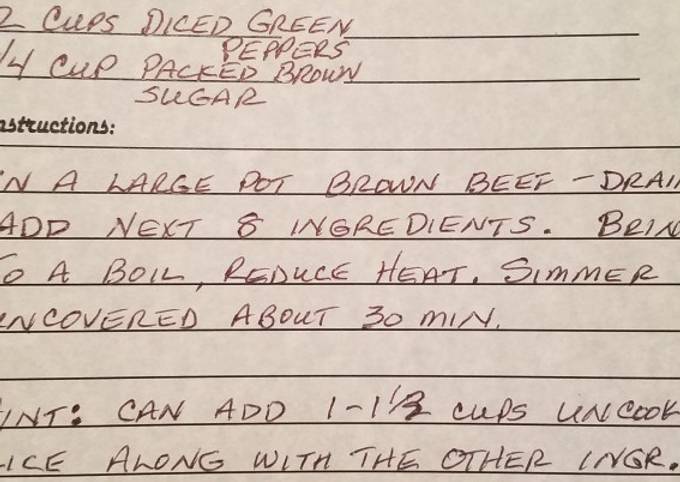 2 CUPS DICED GREEN
PEPPERS
1/4 CUP PACKED BROWN
SUGAR
nstructions:
N A LARGE POT BROWN BEEF - DRAI
ADD NEXT 8 INGREDIENTS. BRIN
TO A BOIL, REDUCE HEAT. SIMMER
UNCOVERED ABOUT 30 MIN.
INT: CAN ADD 1-1 1/2 CUPS UNCOOK
ICE ALONG WITH THE OTHER INGR.